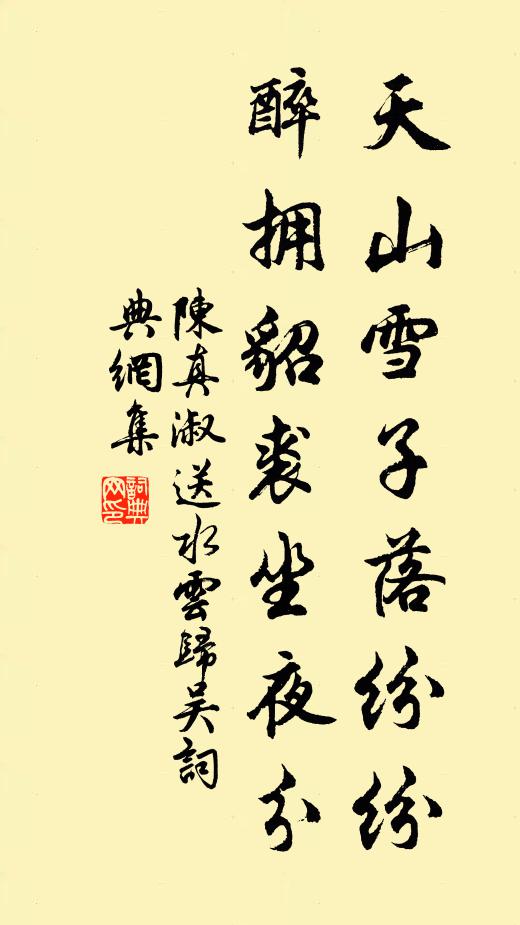 天山雪子落紛紛
醉拥貂裘坐夜分
陳真淑送水雲歸吴詞
典網集
詞典
网印